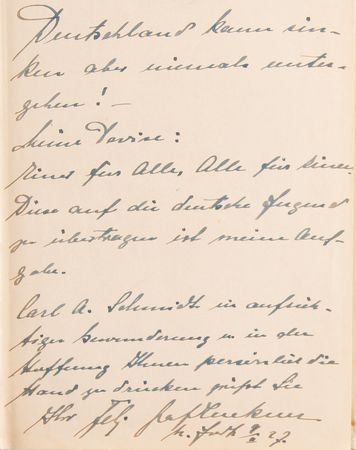 Deutschland kann sin-
ken aber niemals unter-
gehen! –
Meine Devise:
Einer für Alle, Alle für Einen.
Diese auf die deutsche Jugend
zu übertragen ist meine Auf-
gabe.
Carl A. Schmidt in aufrich-
tiger Bewunderung u in der
Hoffnung Ihnen persönlich die
Hand zu drücken grüßt Sie
Ihr Felix
27.